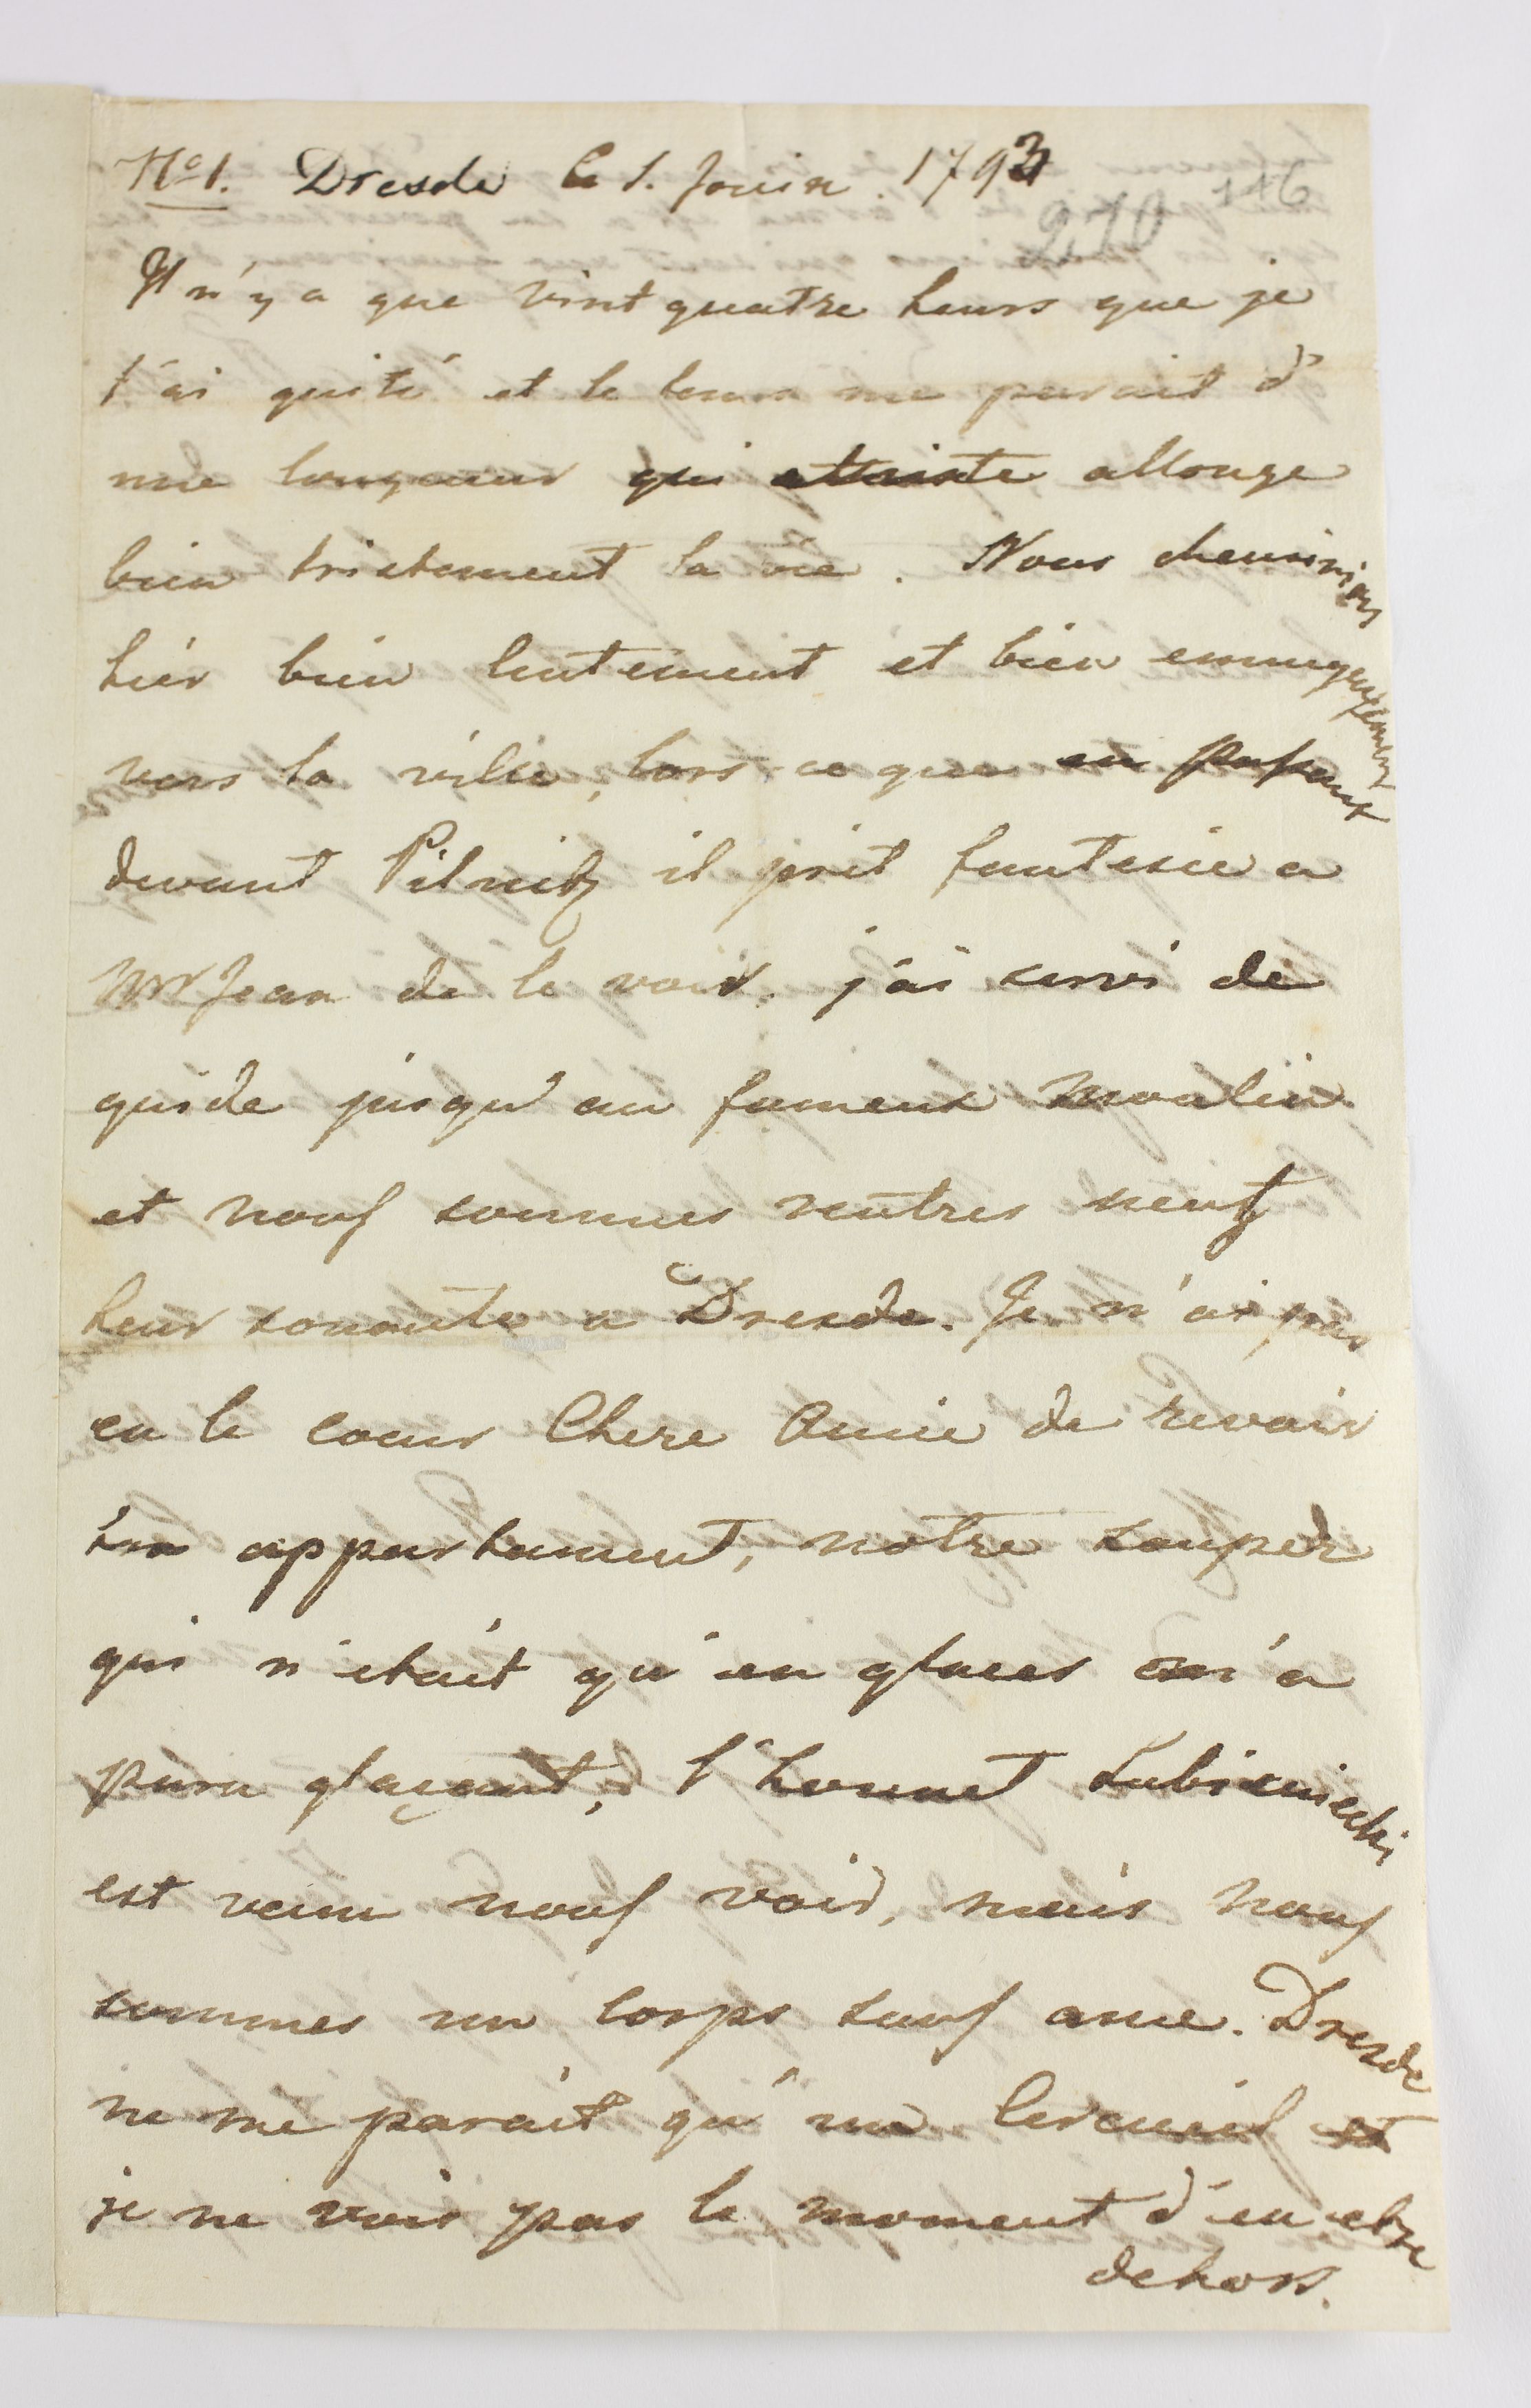 No 1. Dresde le 1. Jouin. 1793
116
210
Il n'y a que vint quatre heurs que je
t'ai quité et le tems me parait d'
une longueur qui attriste allonge
bien tristement la vie. Nous cheminions
hier bien lentement et bien ennuyeusement
vers la ville, lors-ce que en passant
devant Pilnitz il prit fantesie a
Mr Jean de le voir, j'ai servi de
guide jusqu'au fameux moulin
et nous sommes rentres neuf
heur sonante a Dresde. Je n'ai pas
eu le coeur Chere Amie de revoir
ton appartament, notre souper
qui n'etait qu'en glaces m'a
paru glaçant, l'honnet Lubieniecki
est venu nous voir, mais nous
sommes un corps sans ame. Dresde
ne me parait qu'un Cercueil et
je ne vois pas le moment d'en etre
dehors.